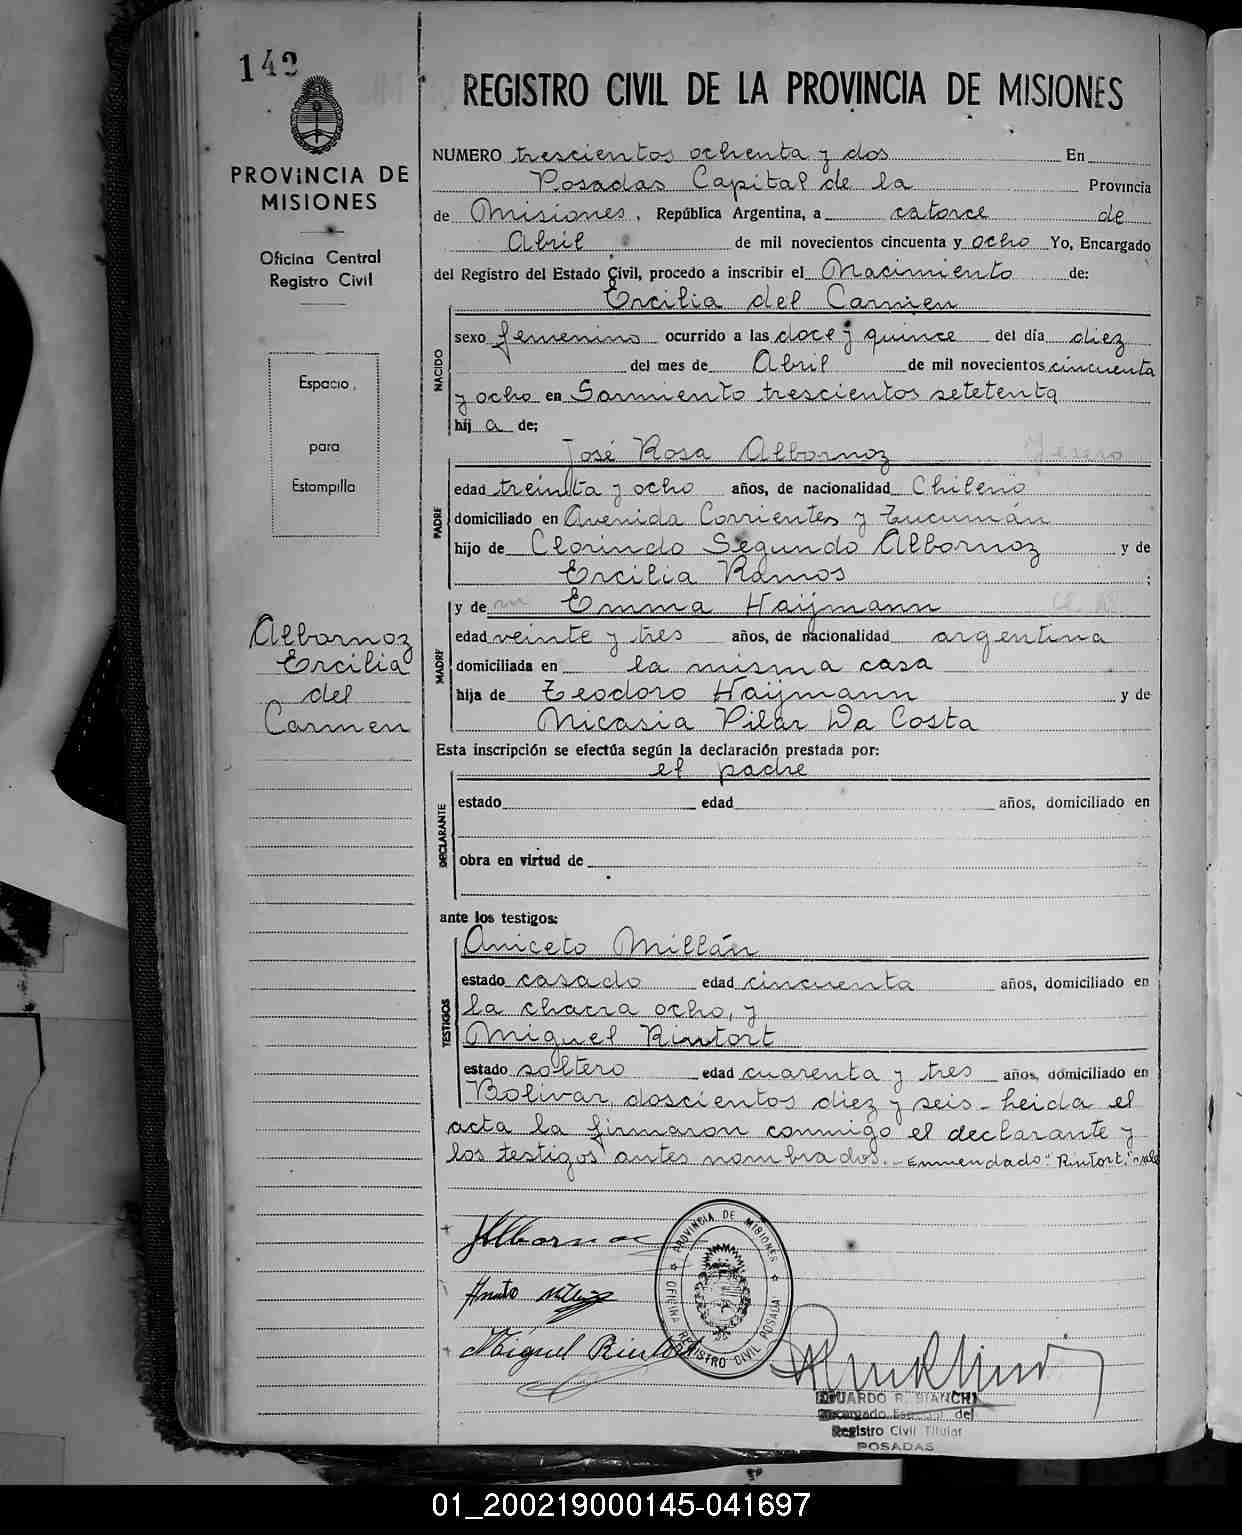 142
PROVINCIA DE
MISIONES
Oficina Central
Registro Civil
Espacio
para
Estampilla
Albornoz
Ercilia
del
Carmen
REGISTRO CIVIL DE LA PROVINCIA DE MISIONES
NUMERO trescientos ochenta y dos En
Posadas Capital de la Provincia
de Misiones, República Argentina, a catorce de
Abril de mil novecientos cincuenta y ocho Yo, Encargado
del Registro del Estado Civil, procedo a inscribir el Nacimiento de:
Ercilia del Carmen
NACIDO
sexo femenino ocurrido a las doce y quince del día diez
del mes de Abril de mil novecientos cincuenta
y ocho en Sarmiento trescientos setetenta
hij a de;
José Rosa Albornoz
PADRE
edad treinta y ocho años, de nacionalidad Chileno
domiciliado en Avenida Corrientes y Tucumán
hijo de Clorindo Segundo Albornoz y de
Ercilia Ramos ;
y de Emma Haijmann
MADRE
edad veinte y tres años, de nacionalidad argentina
domiciliada en la misma casa
hija de Teodoro Haijmann y de
Nicasia Pilar Da Costa
Esta inscripción se efectúa según la declaración prestada por:
el padre
DECLARANTE
estado edad años, domiciliado en
obra en virtud de
ante los testigos:
Aniceto Millán
TESTIGOS
estado casado edad cincuenta años, domiciliado en
la chacra ocho, y
Miguel Riutort
estado soltero edad cuarenta y tres años, domiciliado en
Bolivar doscientos diez y seis - heida el
acta la firmaron conmigo el declarante y
los testigos antes nombrados. - Enmendado: "Riutort." vale
JAlbornoz
Miguel Riutort
PROVINCIA DE MISIONES
OFICINA REGISTRO CIVIL POSADAS
EDUARDO R. BIANCHI
Encargado Especial del
Registro Civil Titular
POSADAS
01_200219000145-041697